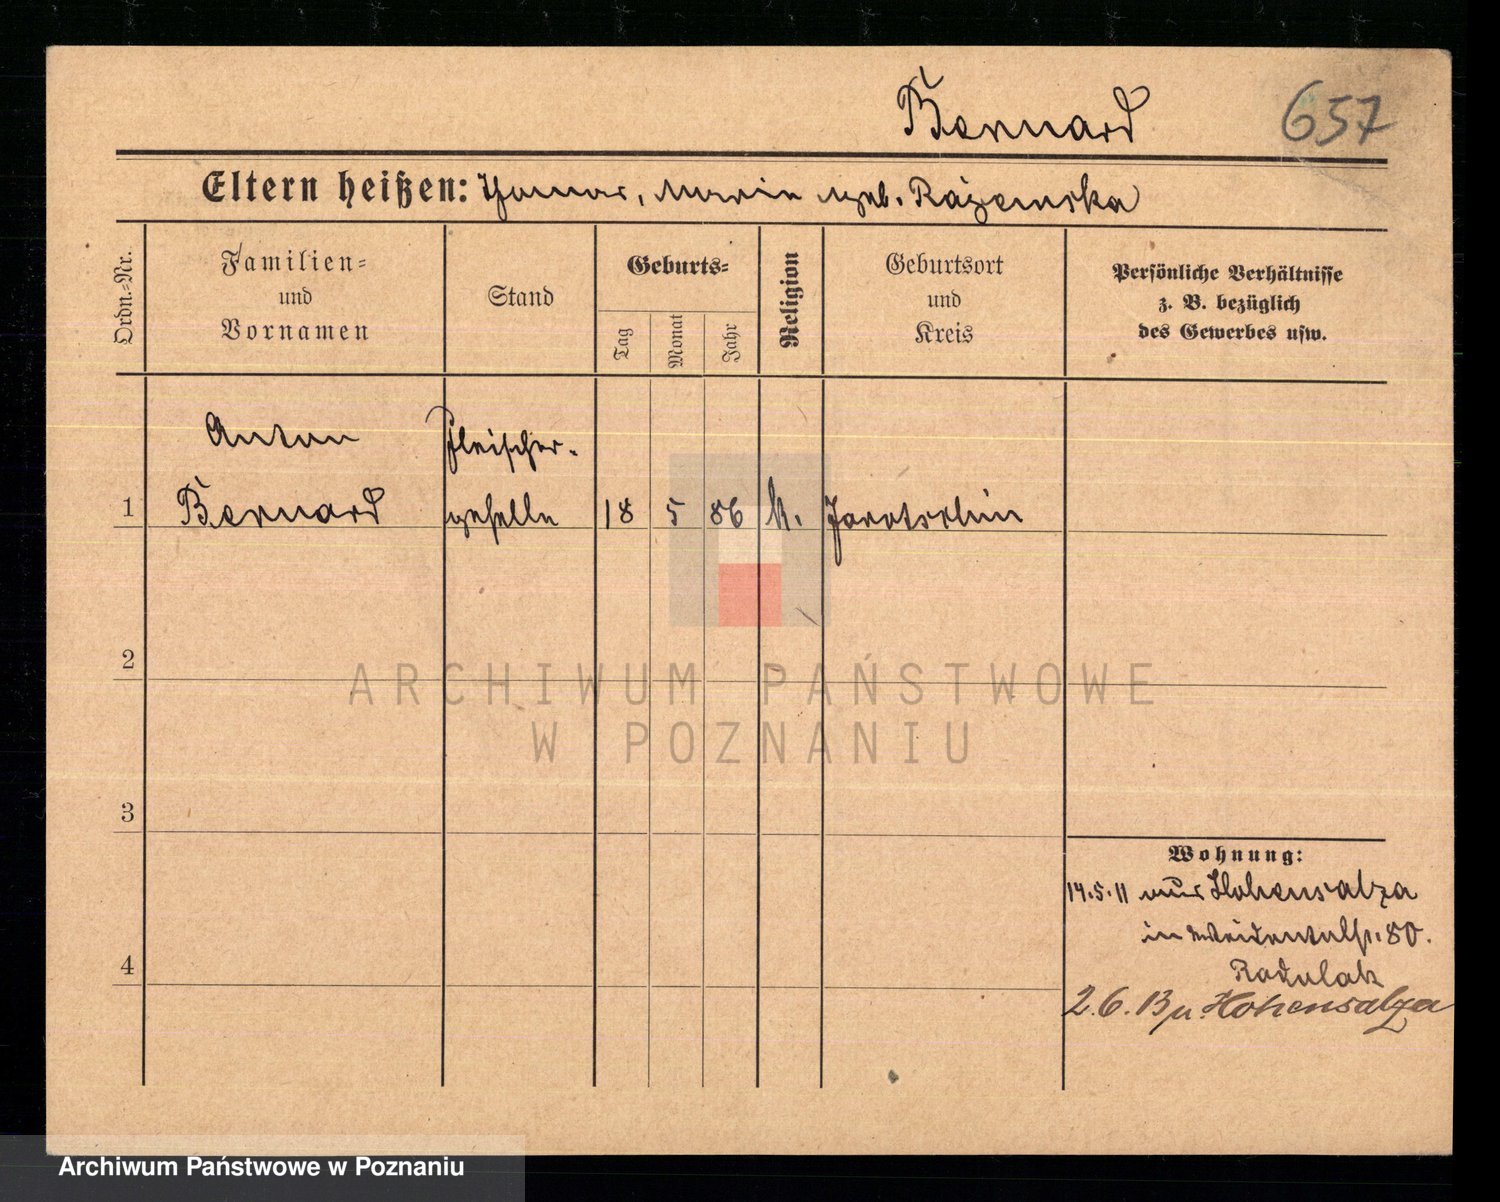 Bernard
657
Eltern heißen: Thomas, Maria geb. Rażemska
Ordn.=Nr.
Familien=
und
Vornamen
Stand
Geburts=
Tag
Monat
Jahr
Religion
Geburtsort
und
Kreis
Persönliche Verhältnisse
z. B. bezüglich
des Gewerbes usw.
Anton
Bernard
Fleischer-
geselle
1
18
5
86
k.
Jarotschin
2
3
4
Wohnung:
14.5.11 aus Hohensalza
in 80.
Radulak
2.6.13 n. Hohensalza
ARCHIWUM PAŃSTWOWE
W POZNANIU
Archiwum Państwowe w Poznaniu